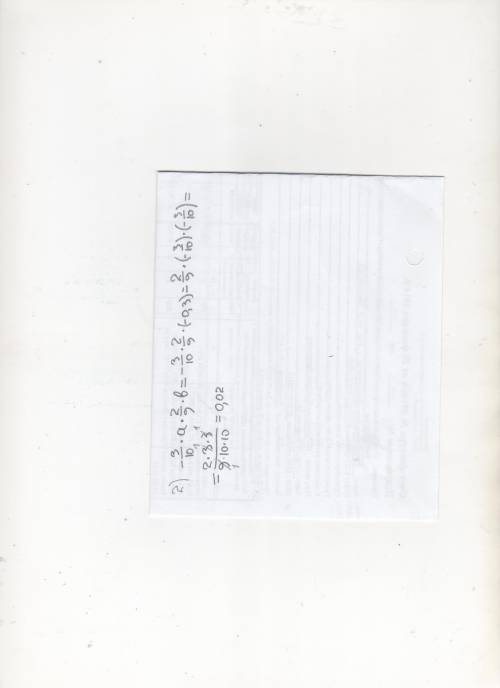 2) -3/10 · a · 2/9 · b = -3/10 · 2/9 · (-0,3) = 2/9 · (-3/10) · (-3/10) =
= 2·3·3/9·10·10 = 0,02